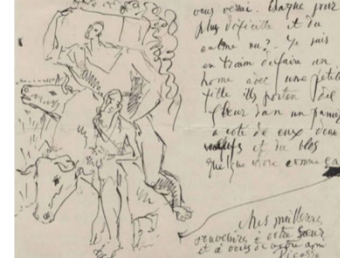 vous verrai. Chaque jour
plus dificille et du
calme ou? Je suis
en tramm de faire un
home avec une petite
fille ils porten des
fleur dans un panier
a coté de eux deux
et du bles
quelque chose comme ça
Mes meilleures
souvenirs a votre Sœur
et a vous de votre ami
Picasso